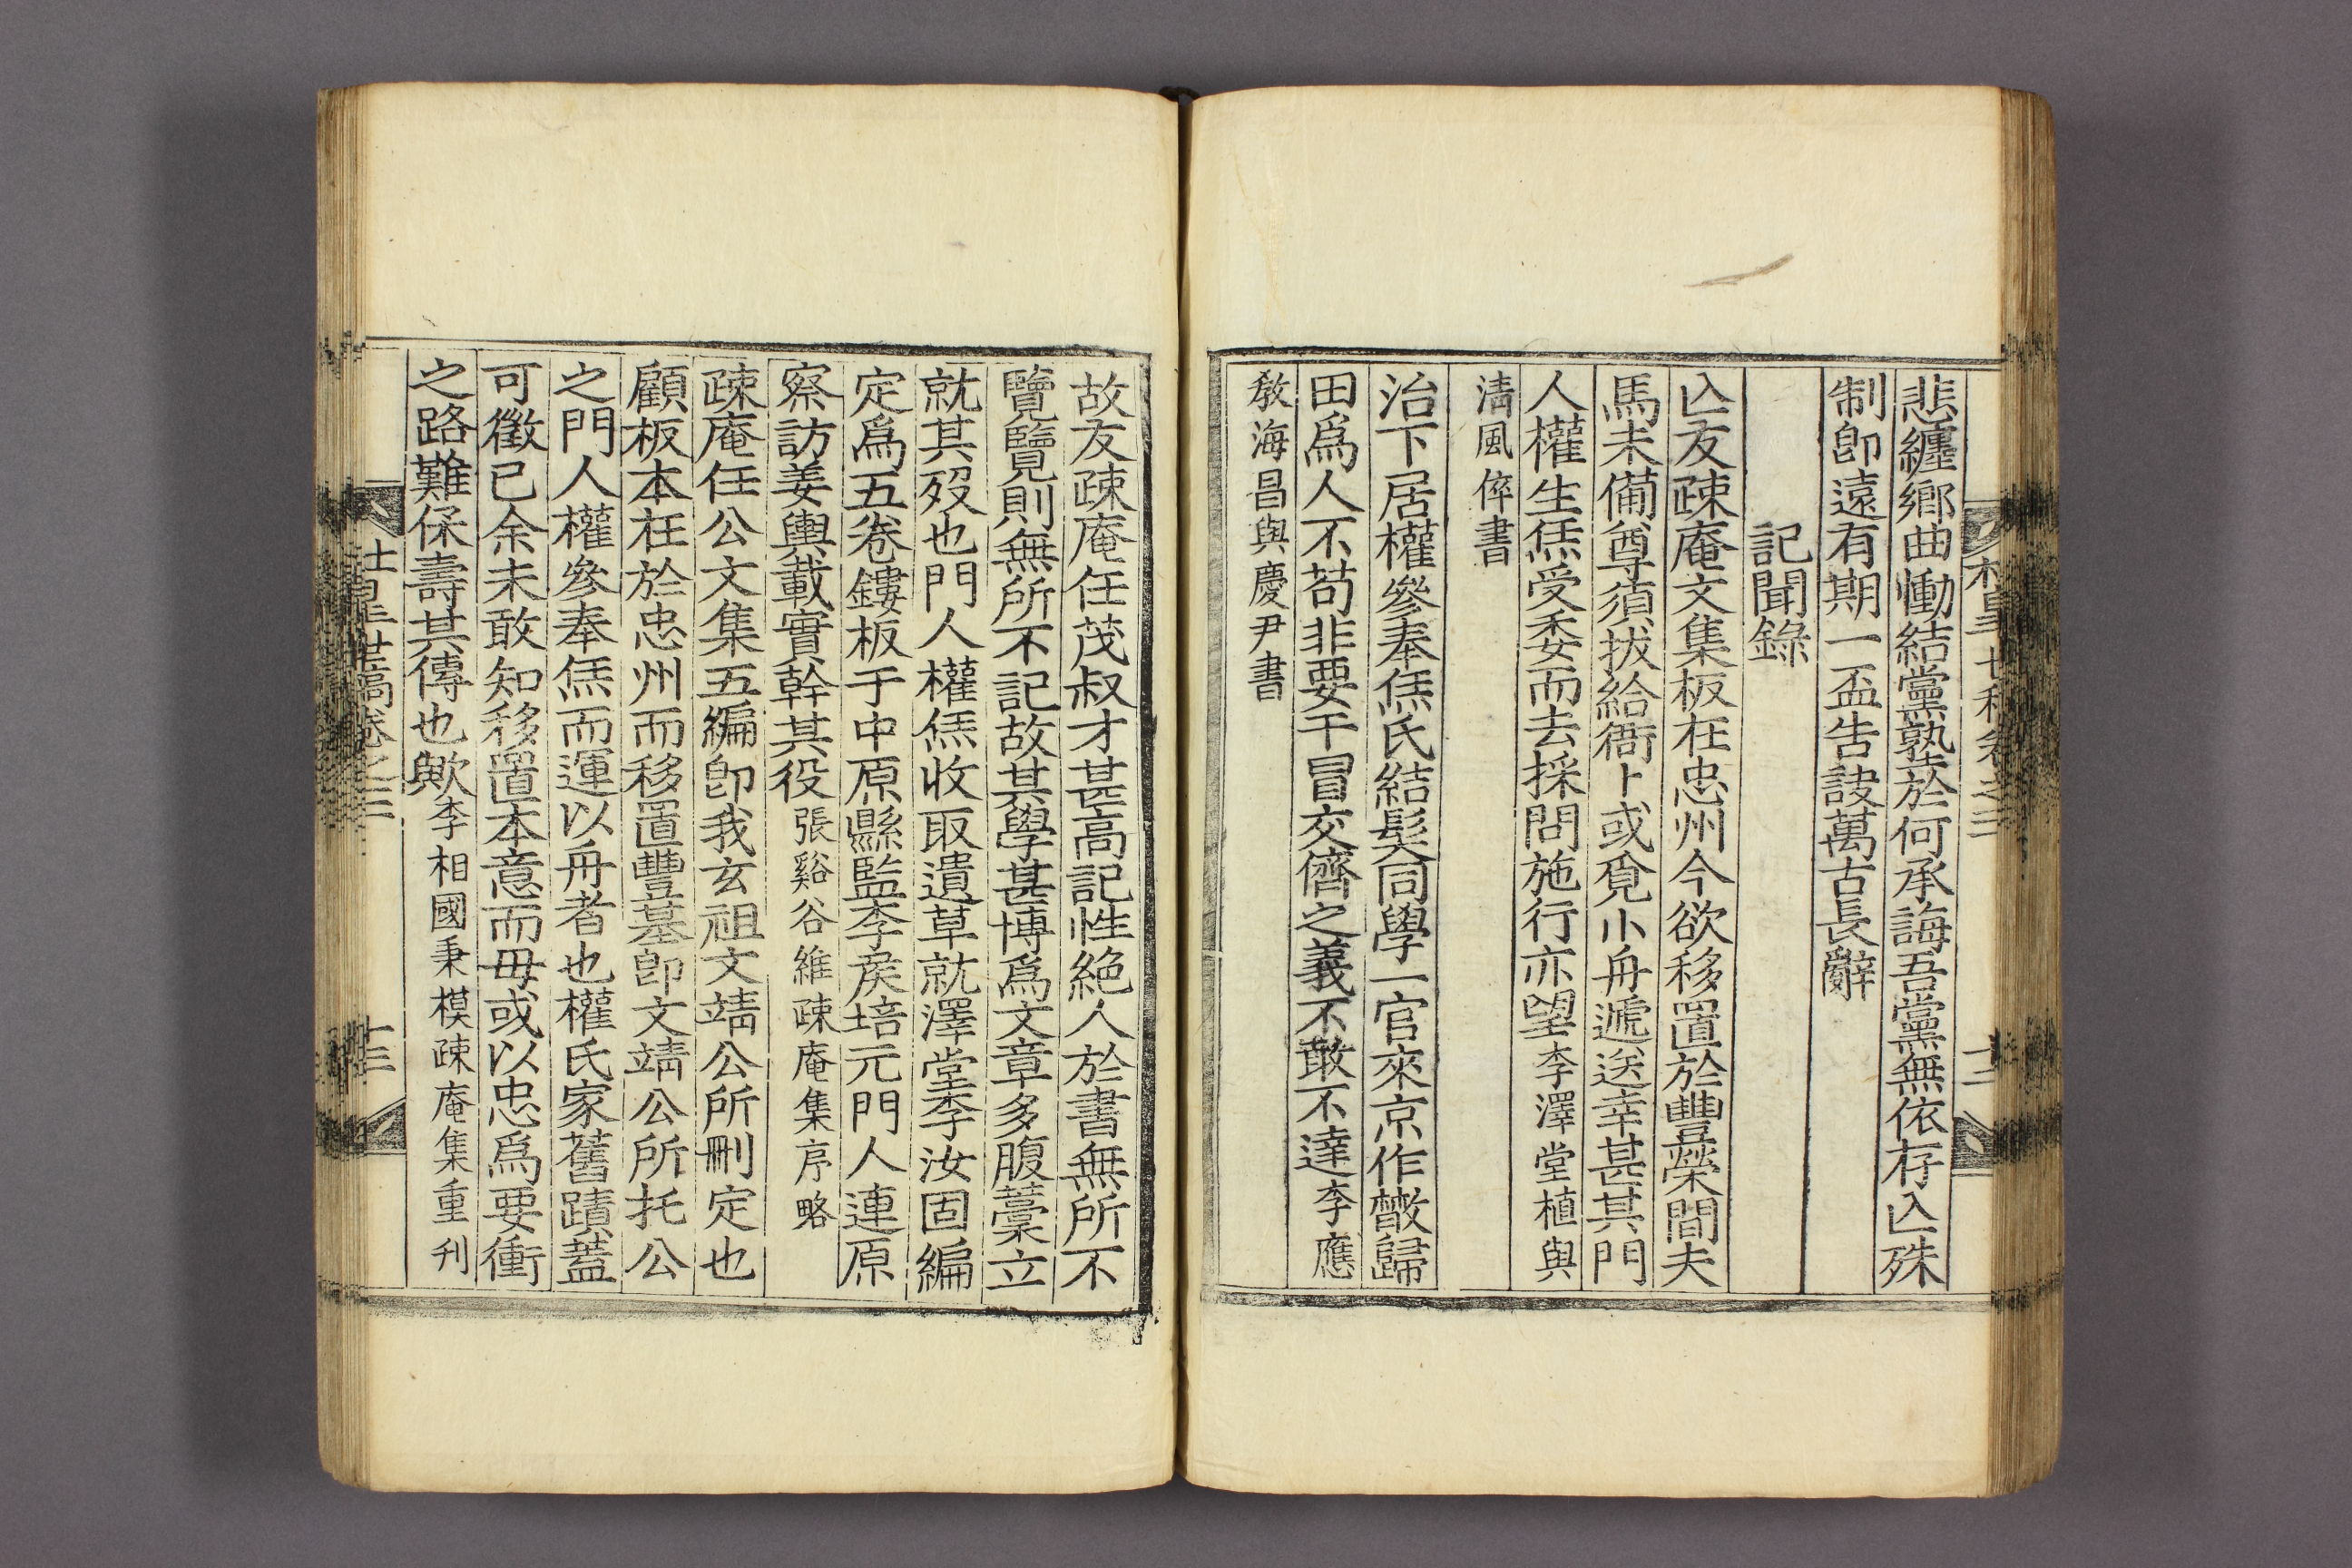 悲纏鄕曲慟結黨塾於何承誨吾黨無依存亾殊
制卽遠有期一盃告訣萬古長辭
記聞錄
亾友疎庵文集板在忠州今欲移置於豐榮間夫
馬未備尊須拔給衙卜或覓小舟遞送幸甚其門
人權生恷受委而去採問施行亦望李澤堂植與
淸風倅書
治下居權參奉恷氏結髮同學一官來京作散歸
田爲人不苟非要干冒交儕之義不敢不達李應
敎海昌與慶尹書
故友疎庵任茂叔才甚高記性絶人於書無所不
覽覽則無所不記故其學甚博爲文章多腹藁立
就其歿也門人權恷收取遺草就澤堂李汝固編
定爲五卷鏤板于中原縣監李矦培元門人連原
察訪姜輿載實幹其役張谿谷維疎庵集序略
疎庵任公文集五編卽我玄祖文靖公所刪定也
顧板本在於忠州而移置豐基卽文靖公所托公
之門人權參奉恷而運以舟者也權氏家舊蹟蓋
可徵已余未敢知移置本意而毋或以忠爲要衝
之路難保壽其傳也歟李相國秉模疎庵集重刋